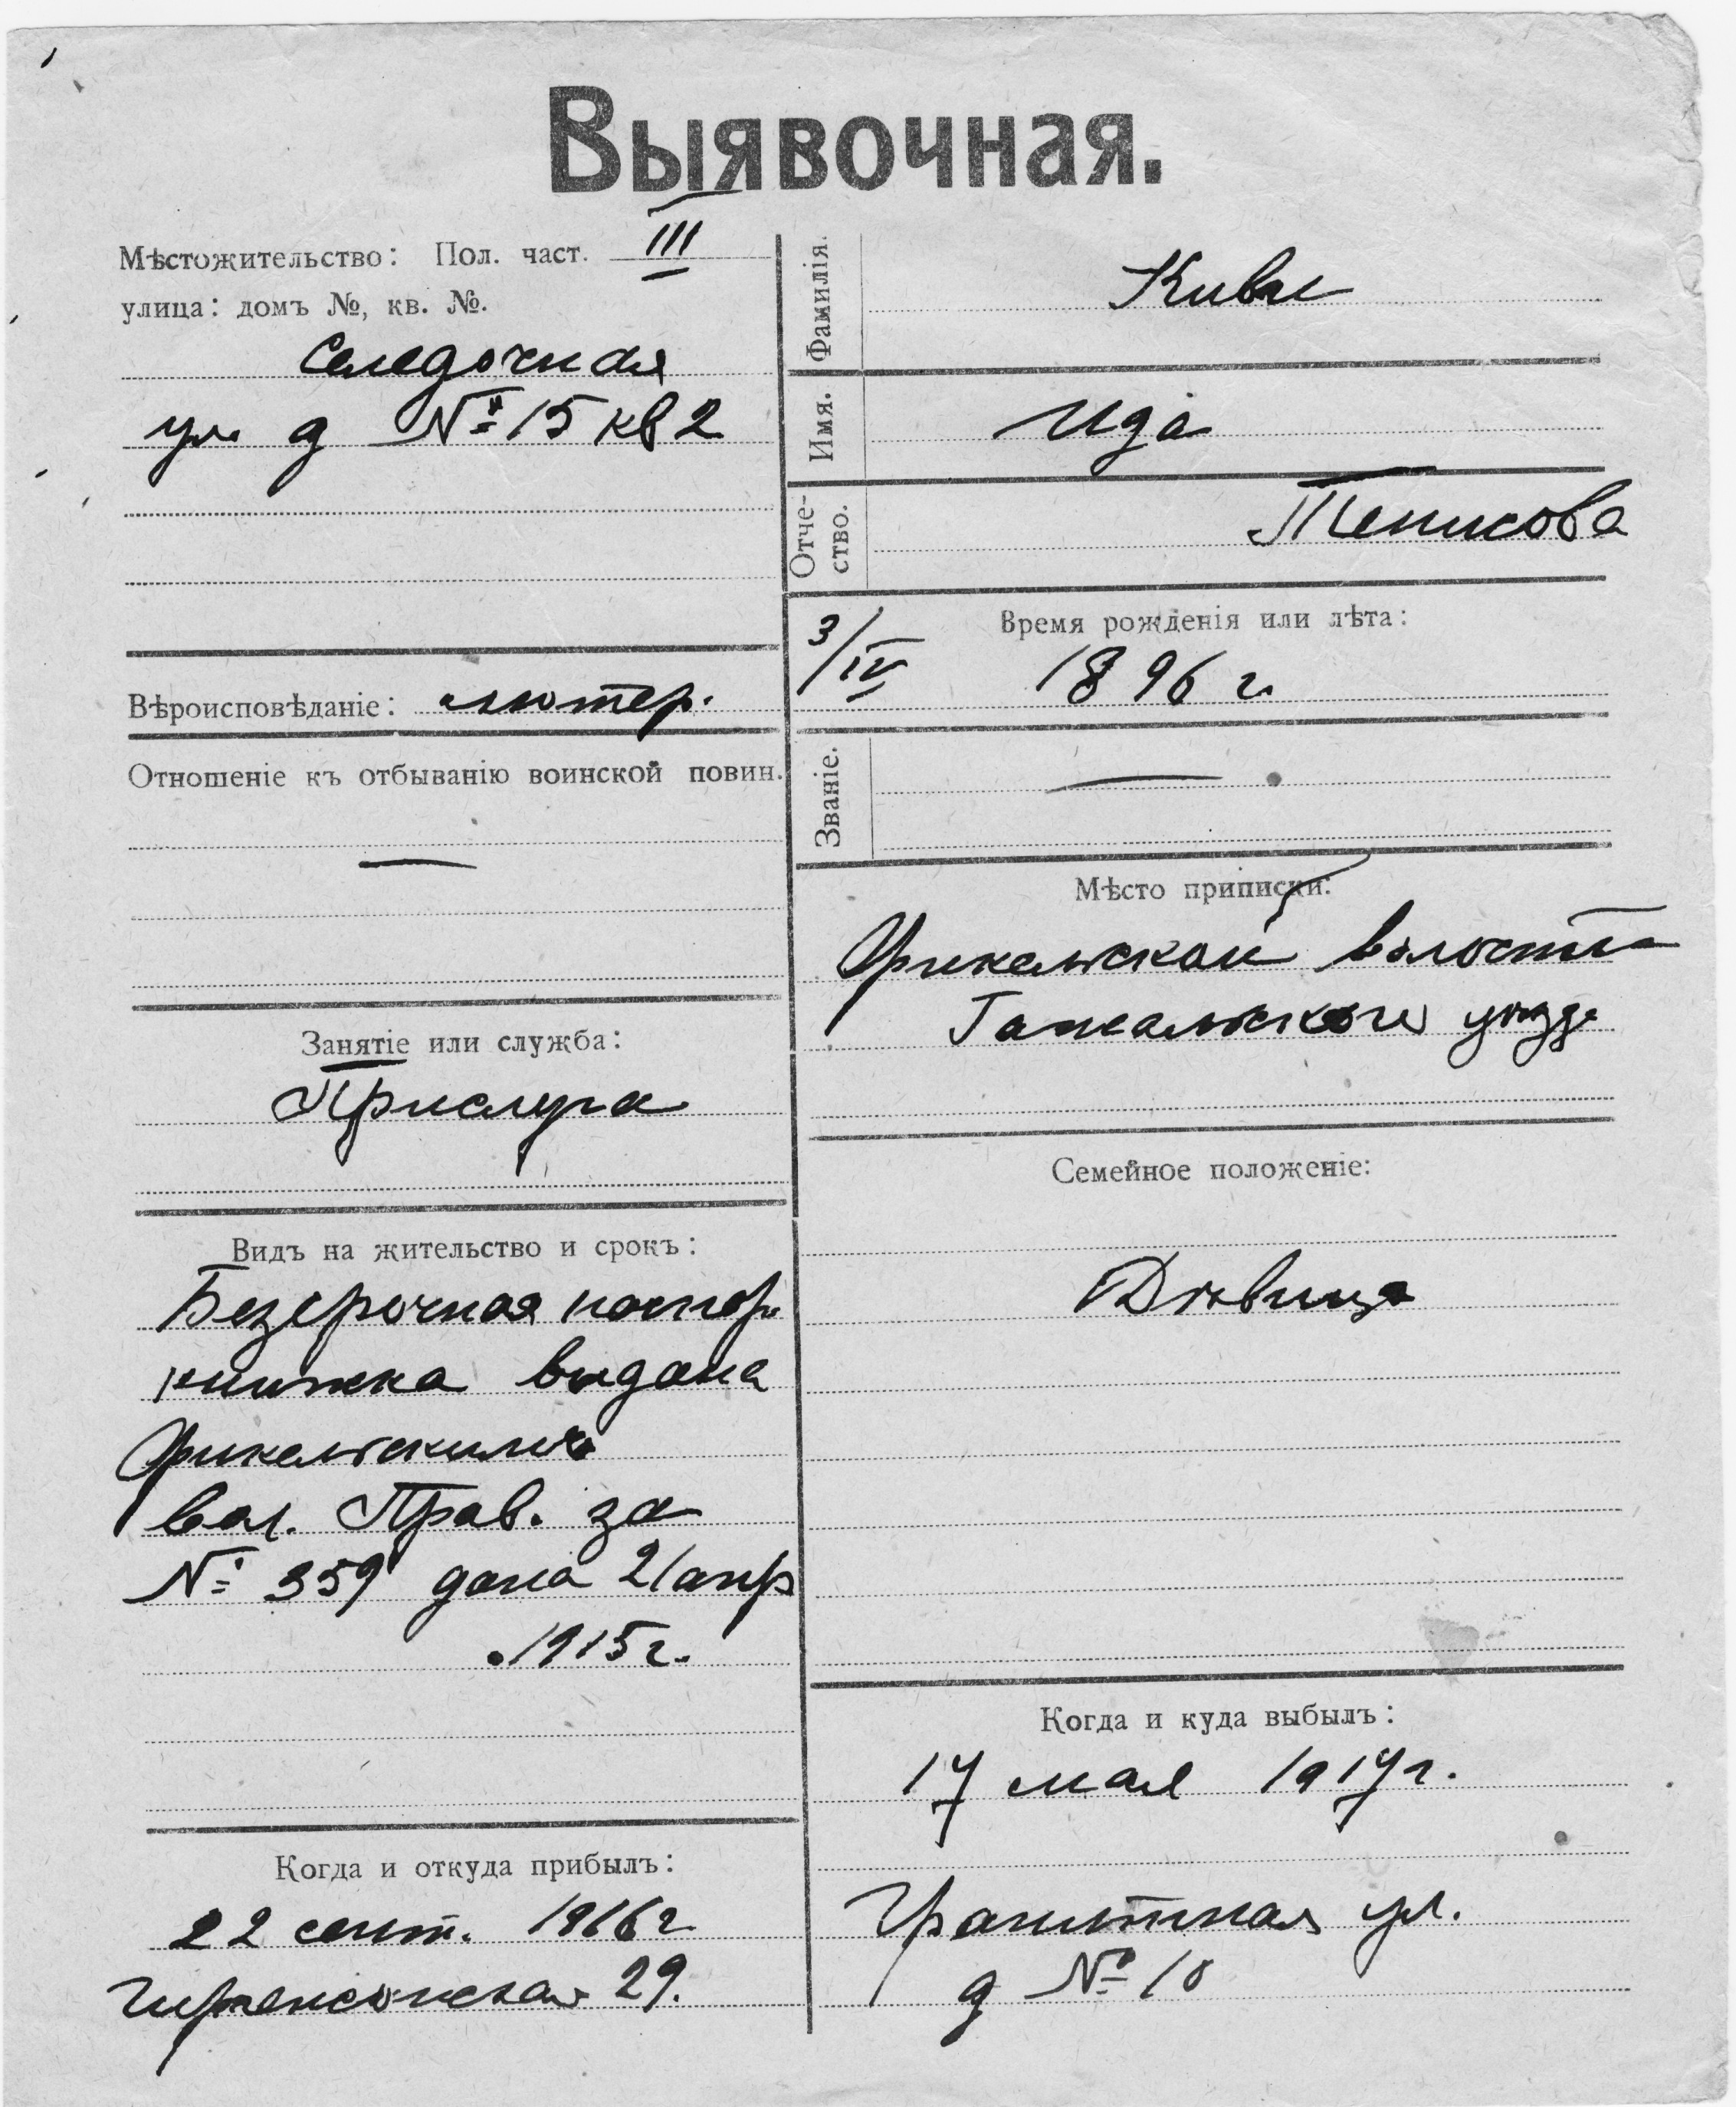 Выявочная.
Мѣстожительство: Пол. част. III
улица: домъ №, кв. №.
Селедочная
ул д № 15 кв 2
Вѣроисповѣданіе: лютер.
Отношеніе къ отбыванію воинской повин.
—
Занятіе или служба:
Прислуга
Видъ на жительство и срокъ:
Безсрочная паспор
книжка выдана
вол. Прав. за
№ 359 дана 21 апр
1915 г.
Когда и откуда прибылъ:
22 сент. 1916 г
29.
Фамилія. Кивы
Имя. Ида
Отчество. Тенисова
Время рожденія или лѣта:
3/IV 1896 г.
Званіе. —
Мѣсто приписки:
волости
уѣзда
Семейное положеніе:
Дѣвица
Когда и куда выбылъ:
17 мая 1917 г.
Гранитная ул.
д № 10